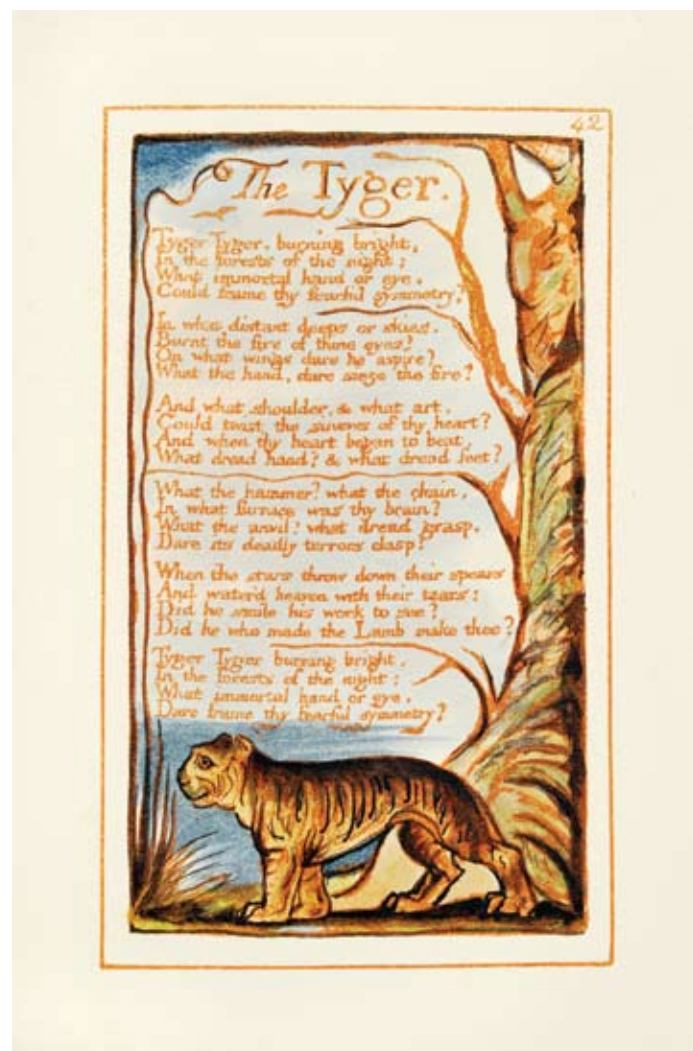 42
The Tyger.
Tyger Tyger, burning bright,
In the forests of the night;
What immortal hand or eye,
Could frame thy fearful symmetry?
In what distant deeps or skies.
Burnt the fire of thine eyes?
On what wings dare he aspire?
What the hand, dare seize the fire?
And what shoulder, & what art,
Could twist the sinews of thy heart?
And when thy heart began to beat,
What dread hand? & what dread feet?
What the hammer? what the chain,
In what furnace was thy brain?
What the anvil? what dread grasp,
Dare its deadly terrors clasp!
When the stars threw down their spears
And water'd heaven with their tears:
Did he smile his work to see?
Did he who made the Lamb make thee?
Tyger Tyger burning bright,
In the forests of the night:
What immortal hand or eye,
Dare frame thy fearful symmetry?